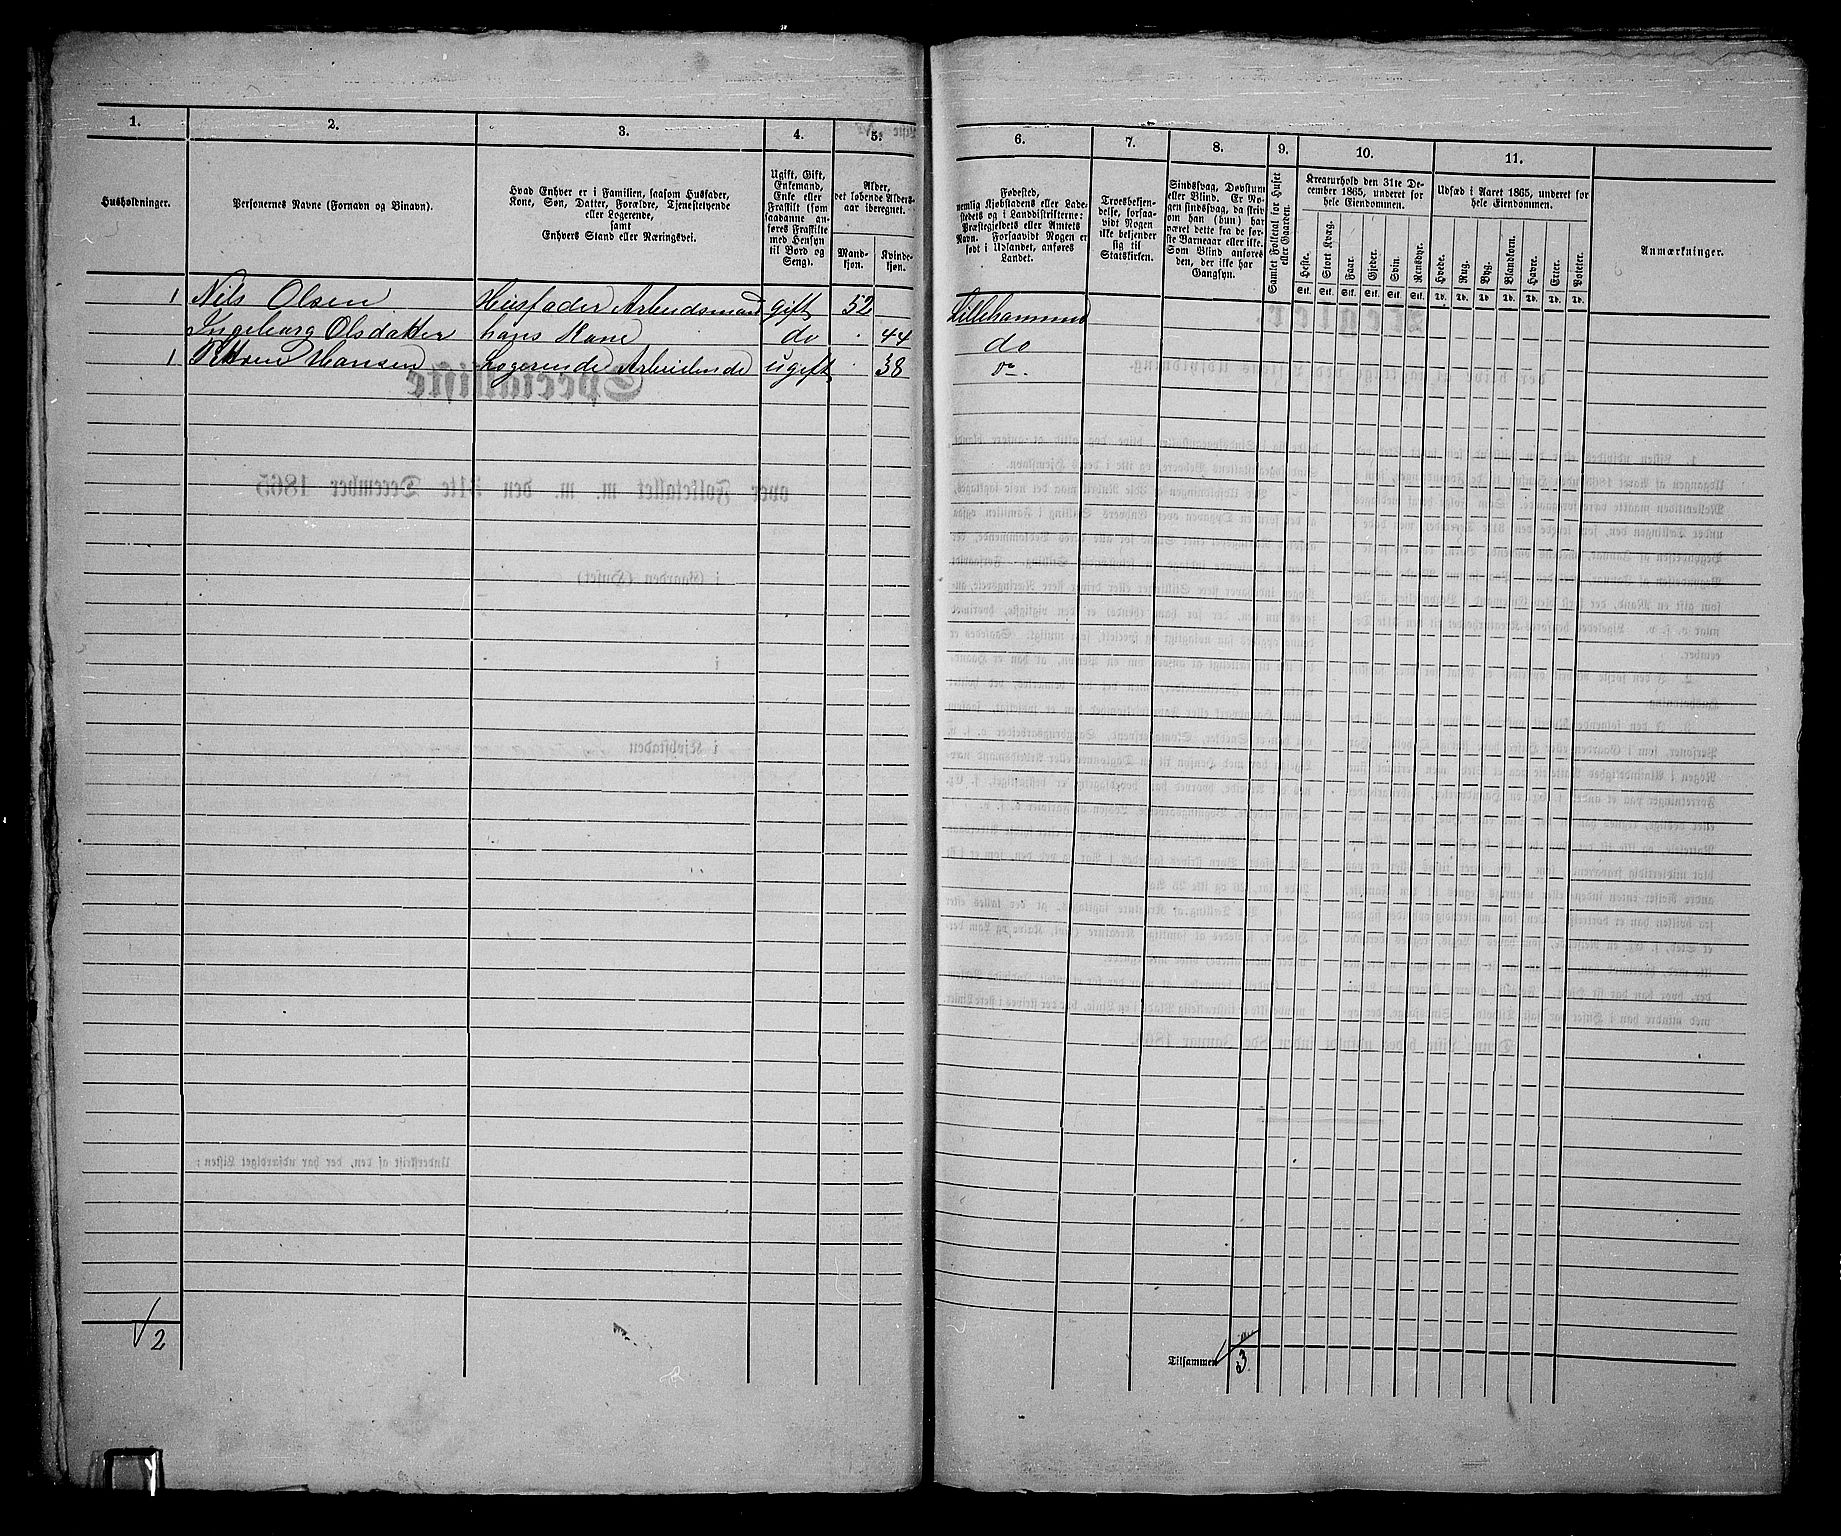 1. 2. 3. 4. 5. 6. 7. 8. 9. 10. 11.
Husholdninger.
Personernes Navne (Fornavn og Binavn).
Hvad Enhver er i Familien, saasom Husfader,
Kone, Søn, Datter, Forældre, Tjenestetyende
eller Logerende,
samt
Enhvers Stand eller Næringsvei.
Ugift, Gift,
Enkemand,
Enke eller
Fraskilt (som
saadanne an-
føres Fraskilte
med Hensyn
til Bord og
Seng).
Alder,
det løbende Alders-
aar iberegnet.
Mand-
kjøn.
Kvinde-
kjøn.
Fødested,
nemlig Kjøbstadens eller Lade-
stedets og i Landdistrikterne:
Præstegjeldets eller Amtets
Navn. Forsaavidt Nogen er
født i Udlandet, anføres
Landet.
Troesbekjen-
delse, forsaa-
vidt Nogen
ikke bekjender
sig til
Statskirken.
Sindssvag, Døvstum
eller Blind. Er No-
gen sindssvag, da skriv
om han (hun) har
været dette fra de før-
ste Barneaar eller ikke.
Som Blind anføres
den, der ikke har
Gangsyn.
Samlet Folketal for Huset
eller Gaarden.
Kreaturhold den 31te De-
cember 1865, underet for
hele Eiendommen.
Heste. Stort Kvæg. Faar. Gjeder. Svin. Rensdyr.
Stk. Stk. Stk. Stk. Stk. Stk.
Udsæd i Aaret 1865, underet for
hele Eiendommen.
Hvede. Rug. Byg. Blandkorn. Havre. Erter. Poteter.
Td. Td. Td. Td. Td. Td. Td.
Anmærkninger.
1 Nils Olsen Husfader Arbeidsmand gift 52 Lillehammer
Ingeborg Olsdatter hans Kone do . 44 do
1 Hansen Logerende Arbeidende ugift . 38 do.
2
Tilsammen 3